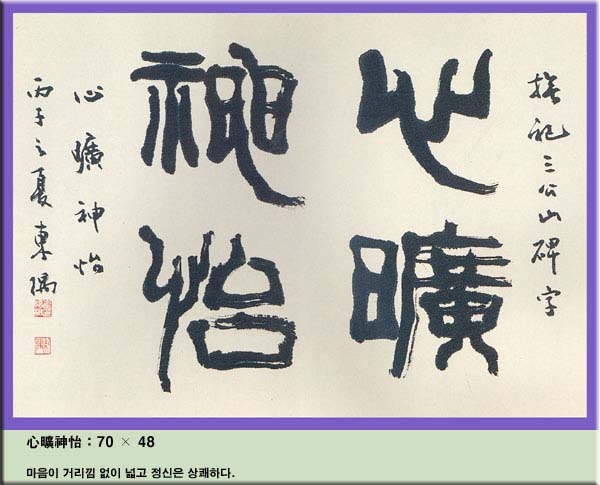 祀三公山碑字
心曠
神怡
心曠神怡
丙子之夏東隅
心曠神怡 : 70 × 48
마음이 거리낌 없이 넓고 정신은 상쾌하다.